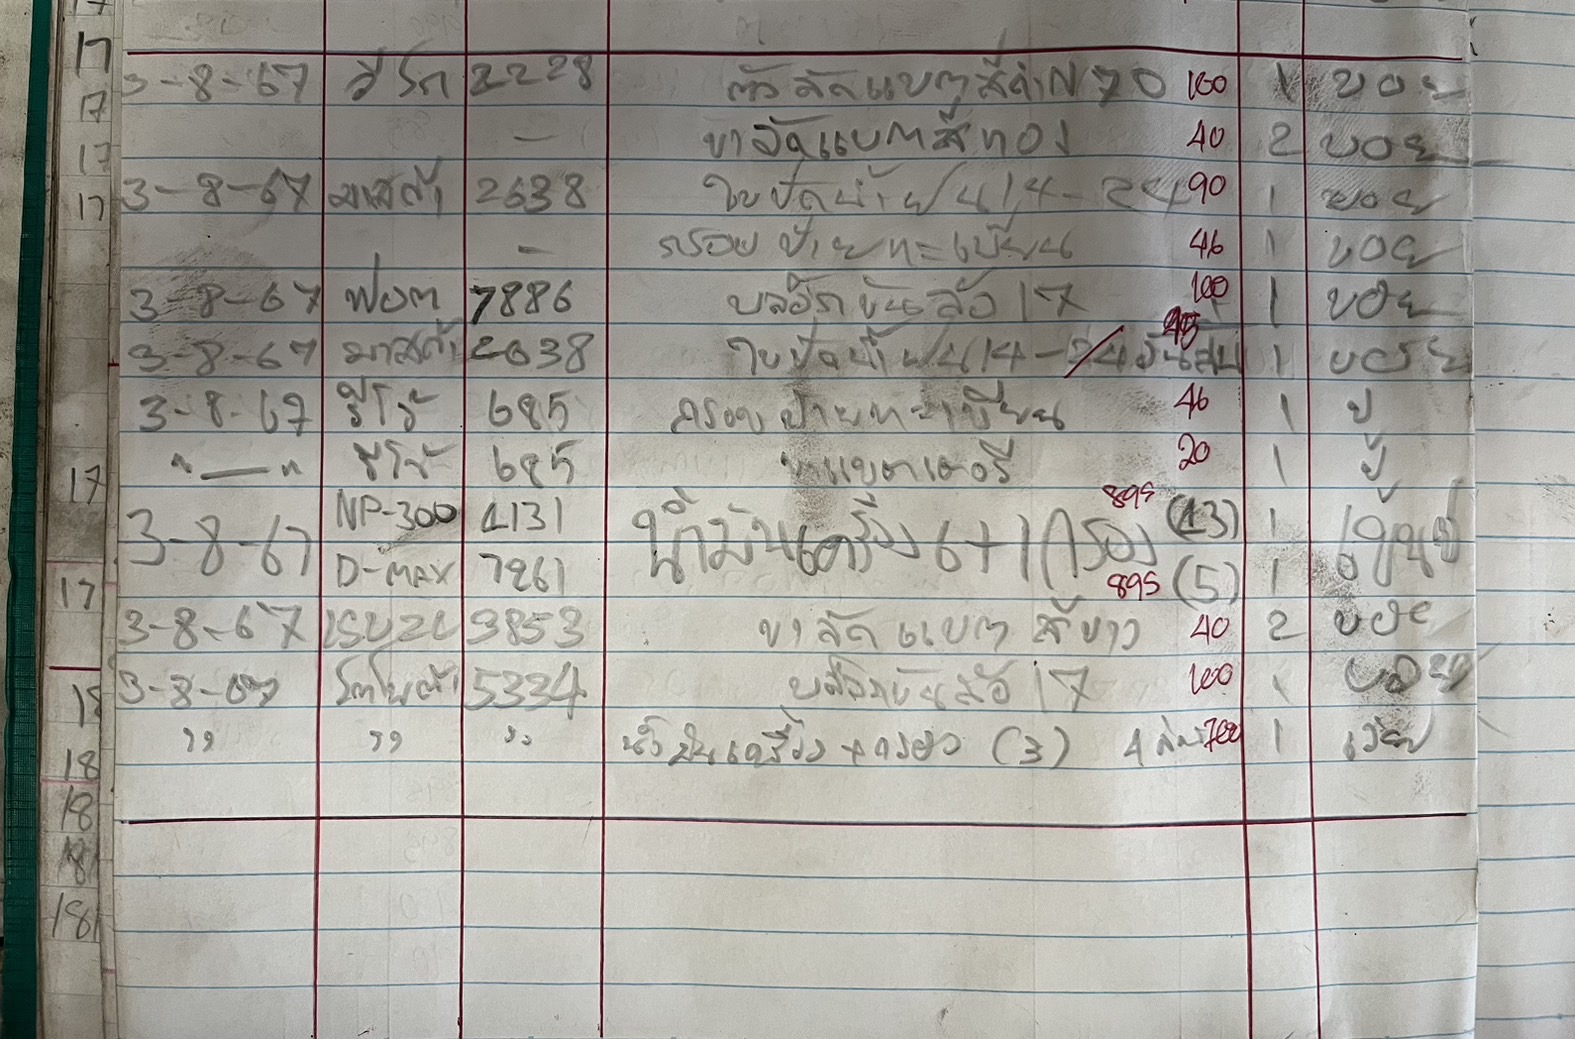 17
17
17
17
17
17
18
18
18
181
181
3-8-67 ฮีโน่ 2228 ตัวลัดแบตสีดำN70 100 1 บอย
— ขาลัดแบตสีทอง 40 2 บอย
3-8-67 มาสด้า 2638 ใบปัดน้ำฝน 14-24 90 1 บอย
— กรอบป้ายทะเบียน 46 1 บอย
3-8-67 ฟอด 7886 บล๊อกขันล้อ 17 100 1 บอย
3-8-67 มาสด้า 2638 ใบปัดน้ำฝน 14-24 1 บอย
3-8-67 รีโว้ 685 กรอบป้ายทะเบียน 46 1 ปู
"—" รีโว้ 685 ขาแบตเตอรี่ 20 1 ปู
3-8-67 NP-300 4131 น้ำมันเครื่อง 6+1 กรอง 895 (13) 1
D-MAX 7261 895 (5) 1
3-8-67 ISUZU 3853 ขาลัดแบตสีขาว 40 2 บอย
3-8-67 โตโยต้า 5334 บล๊อกขันล้อ 17 100 1 บอย
" " " น้ำมันเครื่อง + กรอง (3) 4 ลิตร 700 1